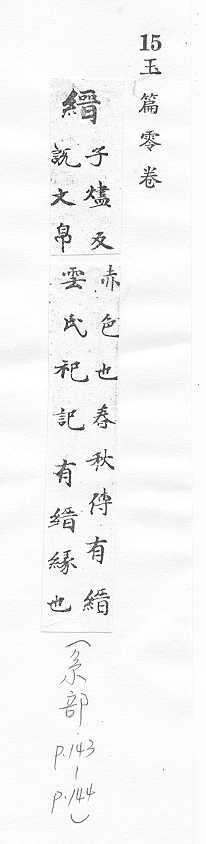 15玉篇零卷
縉
子燼反
說文帛
赤色也春秋傳有縉
雲氏祀記有縉緣也
(糸部 p.143-p.144)